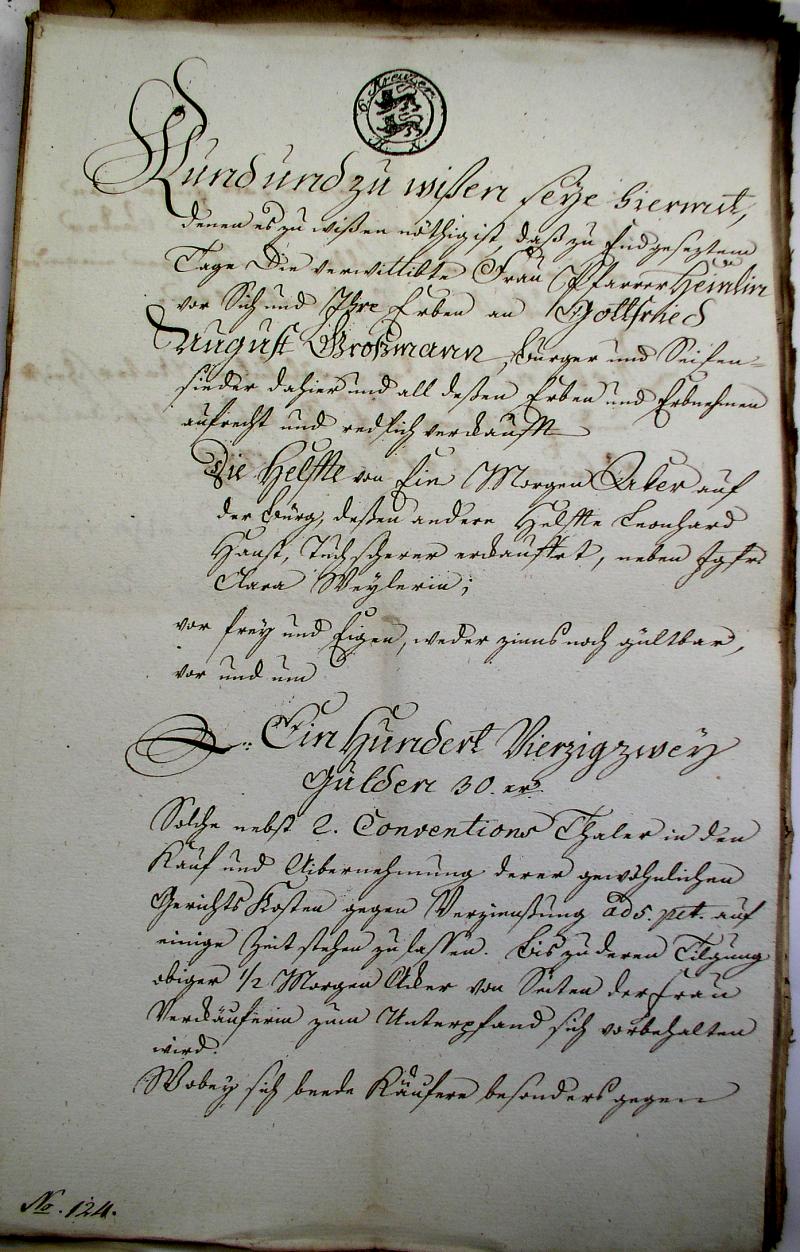 6. Kreuzer
K. N.
Kund und zu wißen seye hiermit,
denen es zu wißen nöthig ist, daß zu Endgeseztem
Tage Die verwittibte Frau Pfarrer Hemlin
vor Sich und Ihre Erben an Gottfried
August Großmann, Burger und Seifen=
sieder dahier und all deßen Erben und Erbnehmen
aufrecht und redlich verkaufft
Die Helffte von Ein Morgen Aker auf
der Bürg, deßen andere Helffte Leonhard
Hanst, Tuchscherer erkauffet, neben Jgfr.
Clara Weylerin;
vor frey und Eigen, weder zinns noch gültbar,
vor und um
Ein Hundert Vierzig zwey
Gulden 30. xr
Solche nebst 2. Conventions Thaler in den
Kauf und Uibernehmung derer gewöhnlichen
Gerichts Kosten gegen Verzinnßung ad 5. pct. auf
einige Zeit stehen zu lassen. Bis zu deren Tilgung
obiger 1/2 Morgen Aker von Seiten der Frau
Verkäuferin zum Unterpfand sich vorbehalten
wird.
Wobey sich beede Käufere besonders gegen
No. 124.